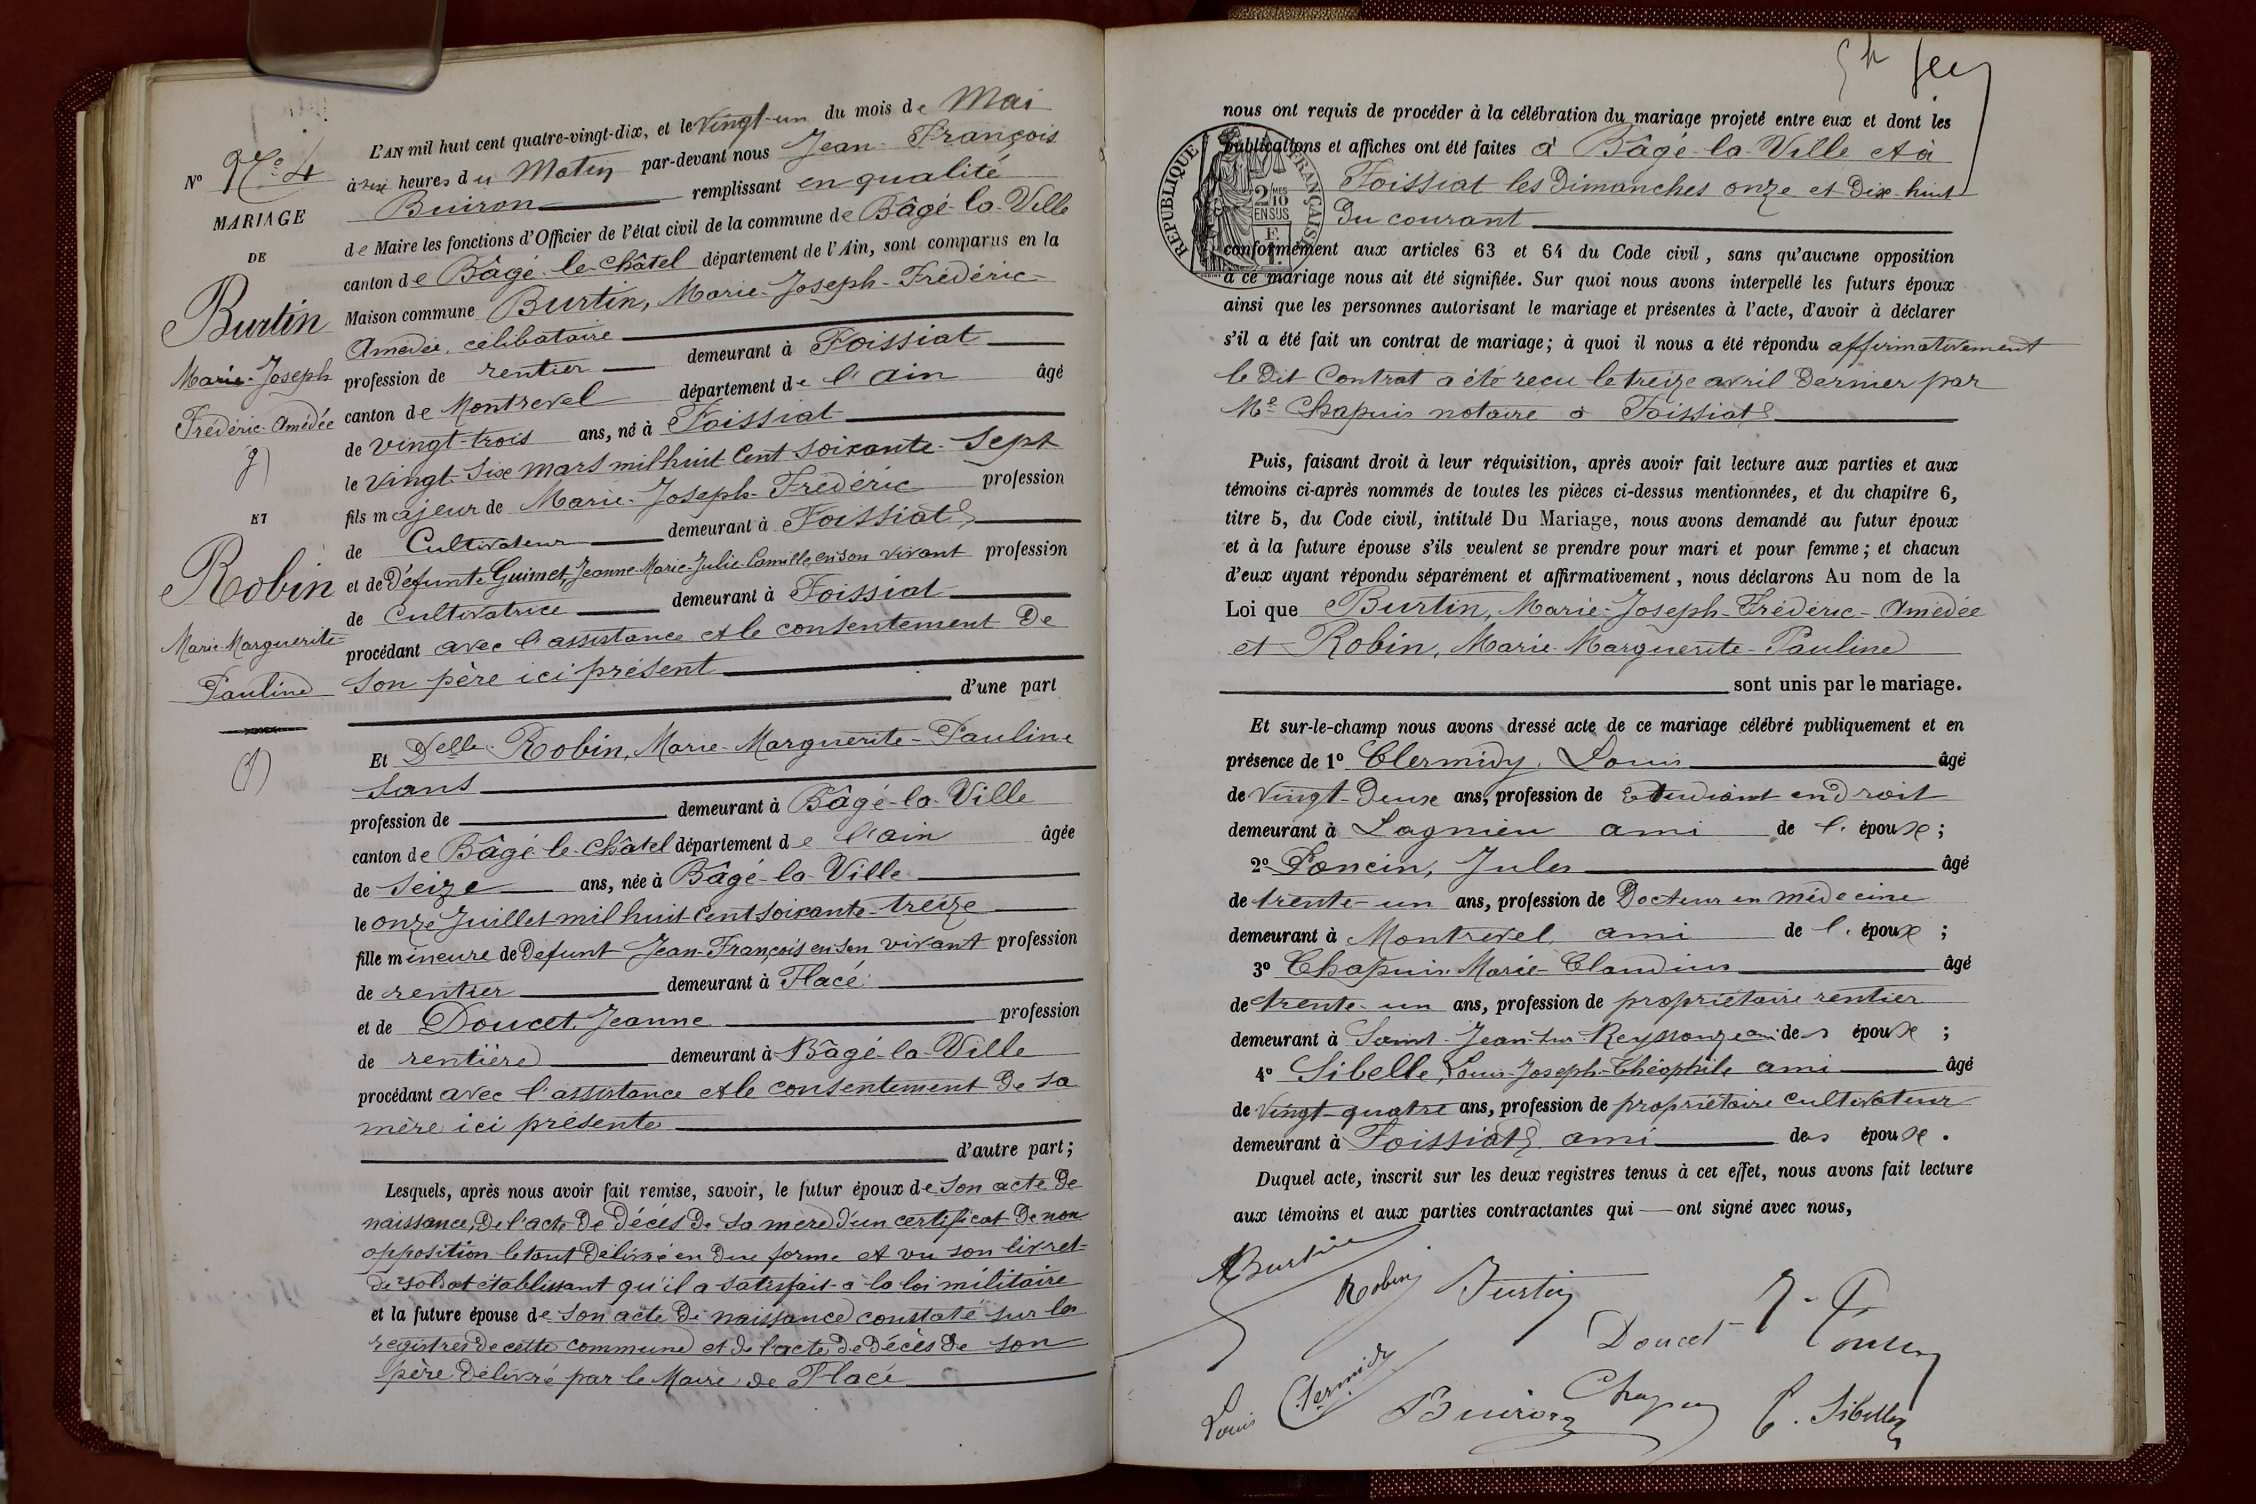 L'AN mil huit cent quatre-vingt-dix, et le Vingt-un du mois de Mai
à six heures du Matin par-devant nous Jean François
Buiron remplissant en qualité
de Maire les fonctions d'Officier de l'état civil de la commune de Bâgé-la-Ville
canton de Bâgé-le-Châtel département de l'Ain, sont comparus en la
Maison commune Burtin, Marie-Joseph-Frédéric-
Amédée, célibataire
profession de rentier demeurant à Foissiat
canton de Montrevel département de l'Ain âgé
de vingt-trois ans, né à Foissiat
le vingt-six mars mil huit cent soixante-sept
fils majeur de Marie-Joseph-Frédéric profession
de Cultivateur demeurant à Foissiat
et de Défunte Guimet, Jeanne-Marie-Julie-Camille, en son vivant profession
de cultivatrice demeurant à Foissiat
procédant avec l'assistance et le consentement De
son père ici présent
d'une part
Et Delle Robin, Marie-Marguerite-Pauline
sans
profession de demeurant à Bâgé-la-Ville
canton de Bâgé-le-Châtel département de l'Ain âgée
de seize ans, née à Bâgé-la-Ville
le onze Juillet mil huit cent soixante-treize
fille mineure de Defunt Jean-François en son vivant profession
de rentier demeurant à Flacé
et de Doucet, Jeanne profession
de rentière demeurant à Bâgé-la-Ville
procédant avec l'assistance et le consentement de sa
mère ici présente
d'autre part;
Lesquels, après nous avoir fait remise, savoir, le futur époux de son acte de
naissance, De l'acte De Décès De sa mère d'un certificat De non
opposition le tout Délivré en due forme et vu son livret
de soldat établissant qu'il a satisfait à la loi militaire
et la future épouse de son acte de naissance constaté sur les
registres de cette commune et de l'acte de décès de son
père Délivré par le Maire de Flacé
No 4
MARIAGE
DE
Burtin
Marie-Joseph
Frédéric-Amédée
ET
Robin
Marie-Marguerite=
Pauline
nous ont requis de procéder à la célébration du mariage projeté entre eux et dont les
publications et affiches ont été faites à Bâgé-la-Ville et à
Foissiat les Dimanches onze et Dix-huit
Du courant
conformément aux articles 63 et 64 du Code civil, sans qu'aucune opposition
à ce mariage nous ait été signifiée. Sur quoi nous avons interpellé les futurs époux
ainsi que les personnes autorisant le mariage et présentes à l'acte, d'avoir à déclarer
s'il a été fait un contrat de mariage; à quoi il nous a été répondu affirmativement
le dit Contrat a été reçu le treize avril Dernier par
Me Chapuis notaire à Foissiat
Puis, faisant droit à leur réquisition, après avoir fait lecture aux parties et aux
témoins ci-après nommés de toutes les pièces ci-dessus mentionnées, et du chapitre 6,
titre 5, du Code civil, intitulé Du Mariage, nous avons demandé au futur époux
et à la future épouse s'ils veulent se prendre pour mari et pour femme; et chacun
d'eux ayant répondu séparément et affirmativement, nous déclarons Au nom de la
Loi que Burtin, Marie-Joseph-Frédéric-Amédée
et Robin, Marie-Marguerite-Pauline
sont unis par le mariage.
Et sur-le-champ nous avons dressé acte de ce mariage célébré publiquement et en
présence de 1° Clermidy, Louis âgé
de vingt-Deux ans, profession de Etudiant en Droit
demeurant à Lagnieu ami de l'époux;
2° Poncin, Jules âgé
de trente-un ans, profession de Docteur en médecine
demeurant à Montrevel ami de l'époux;
3° Chapuis Marie-Claudius âgé
de trente-un ans, profession de propriétaire rentier
demeurant à Saint-Jean-sur-Reyssouze ami des époux;
4° Sibelle, Louis-Joseph-Théophile ami âgé
de Vingt-quatre ans, profession de propriétaire cultivateur
demeurant à Foissiat ami des époux.
Duquel acte, inscrit sur les deux registres tenus à cet effet, nous avons fait lecture
aux témoins et aux parties contractantes qui ont signé avec nous,
ABurtin
Robin
Burtin
Doucet
Poncin
Louis Clermidy
Buiron
Chapuis
Sibelle
RÉPUBLIQUE FRANÇAISE
2 MES
10
EN SUS